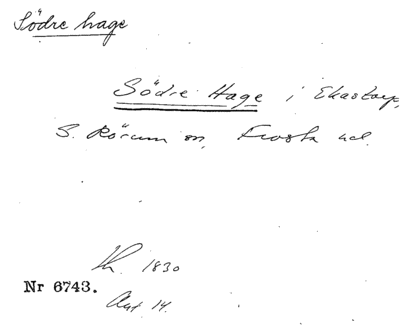 Södre hage
Södre Hage i Ekastorp,
S. Rörum sn, Frosta hd.
1830
Nr 6743.
Akt 14.